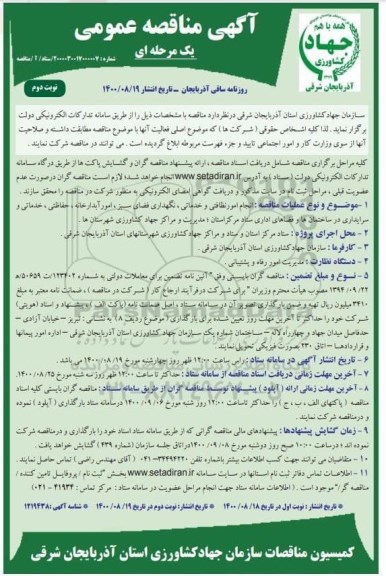 همه با هم
جهاد
کشاورزی
آذربایجان شرقی
آگهی مناقصه عمومی
یک مرحله ای
شماره: ۲۰۰۰۰۳۰۰۱۷۰۰۰۰۰۷/ستاد/آ/مناقصه
نوبت دوم
روزنامه ساقی آذربایجان ـ تاریخ انتشار ۱۴۰۰/۰۸/۱۹
سازمان جهاد کشاورزی استان آذربایجان شرقی درنظر دارد مناقصه با مشخصات ذیل را از طریق سامانه تدارکات الکترونیکی دولت
برگزار نماید. لذا کلیه اشخاص حقوقی (شرکت ها) که موضوع اصلی فعالیت آنها با موضوع مناقصه مطابقت داشته و صلاحیت
آنها از سوی وزارت کار و امور اجتماعی تایید و جزء فهرست مربوطه ابلاغ گردیده است. می توانند در مناقصه شرکت نمایند.
کلیه مراحل برگزاری مناقصه شامل دریافت اسناد مناقصه، ارائه پیشنهاد مناقصه گران و گشایش پاکت ها از طریق درگاه سامانه
تدارکات الکترونیکی دولت (ستاد) به آدرس www.setadiran.ir انجام خواهد شد لازم است مناقصه گران درصورت عدم
عضویت قبلی، مراحل ثبت نام در سایت مذکور و دریافت گواهی امضای الکترونیکی به منظور شرکت در مناقصه را محقق سازند.
۱- موضوع و نوع عملیات مناقصه: انجام امور نظافتی و خدماتی، نگهداری فضای سبز، امور آبدارخانه، حفاظتی، خدماتی و
سرایداری در ساختمان ها و فضاهای اداری ستاد مرکز استان، مدیریت و مراکز جهاد کشاورزی شهرستان ها
۲- محل اجرای پروژه: ستاد مرکز استان و ستاد و مراکز جهاد کشاورزی شهرستانهای استان آذربایجان شرقی
۳- کارفرما: سازمان جهاد کشاورزی استان آذربایجان شرقی.
۴- دستگاه نظارت: مدیریت امور رفاه و پشتیبانی
۵- نوع و مبلغ تضمین: مناقصه گران بایستی وفق "آئین نامه تضمین برای معاملات دولتی به شماره ۱۲۳۴۰۲/ت۵۰۶۵۹ه
۱۳۹۴/۰۹/۲۲ مصوب هیأت محترم وزیران" برای شرکت در فرآیند ارجاع کار (شرکت در مناقصه)، ضمانت نامه معتبر به مبلغ
۳۴۱۰
شرکت خود را حداکثر تا
حدفاصل میدان جهاد و چهارراه لاله – ساختمان شماره یک سازمان جهاد کشاورزی استان آذربایجان شرقی – اداره امور پیمانها
و قراردادها – اتاق ۲۳۰ بصورت فیزیکی تحویل نمایند.
۶- تاریخ انتشار آگهی در سامانه ستاد: راس ساعت ۱۲:۰۰ ظهر روز چهارشنبه مورخ ۱۴۰۰/۰۸/۱۹ می باشد.
۷- آخرین مهلت زمانی دریافت اسناد مناقصه از سامانه ستاد: حداکثر تا ساعت ۱۲:۰۰ ظهر روز سه شنبه مورخ ۱۴۰۰/۰۸/۲۵
۸- آخرین مهلت زمانی ارائه (آپلود) پیشنهاد توسط مناقصه گران از طریق سامانه ستاد: مناقصه گران بایستی کلیه اسناد
مناقصه (پاکتهای الف، ب، ج) را حداکثر تا ساعت ۱۲:۰۰ روز شنبه مورخ ۱۴۰۰/۰۹/۰۶ در سامانه ستاد بارگذاری (آپلود) نموده
و در مناقصه شرکت نمایند.
۹- زمان گشایش پیشنهادها: پیشنهادهای مالی مناقصه گرانی که در سامانه ستاد اسناد خود را بارگذاری و درمناقصه شرکت
نموده اند، در ساعت ۱۰:۰۰ صبح روز دوشنبه مورخ ۱۴۰۰/۰۹/۰۸ در اتاق جلسه سازمان (شماره ۴۳۹) گشایش خواهد یافت.
۱۰- متقاضیان می توانند جهت کسب اطلاعات بیشتر با شماره تلفن ۳۴۴۹۴۲۲۰-۰۴۱ (آقای مهندس ریاضی) تماس حاصل نمایند.
۱۱- اطلاعات تماس دفاتر ثبت نام استانها در سایت سامانه www.setadiran.ir بخش "ثبت نام/پروفایل تامین کننده/
مناقصه گر" موجود است. (اطلاعات سامانه ستاد جهت انجام مراحل عضویت در سامانه ستاد: مرکز تماس: ۴۱۹۳۴-۰۲۱)
* تاریخ انتشار: نوبت اول در تاریخ ۱۴۰۰/۰۸/۱۸ * تاریخ انتشار: نوبت دوم در تاریخ ۱۴۰۰/۰۸/۱۹ * شناسه آگهی: ۱۲۱۹۴۳۸
کمیسیون مناقصات سازمان جهاد کشاورزی استان آذربایجان شرقی